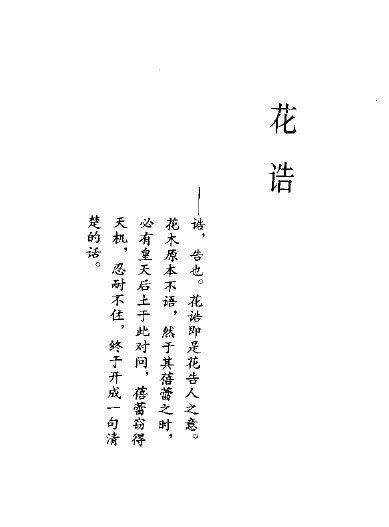 花诰
——诰，告也。花诰即是花告人之意。
花木原本不语，然于其蓓蕾之时，
必有皇天后土于此对问，蓓蕾窃得
天机，忍耐不住，终于开成一句清
楚的话。